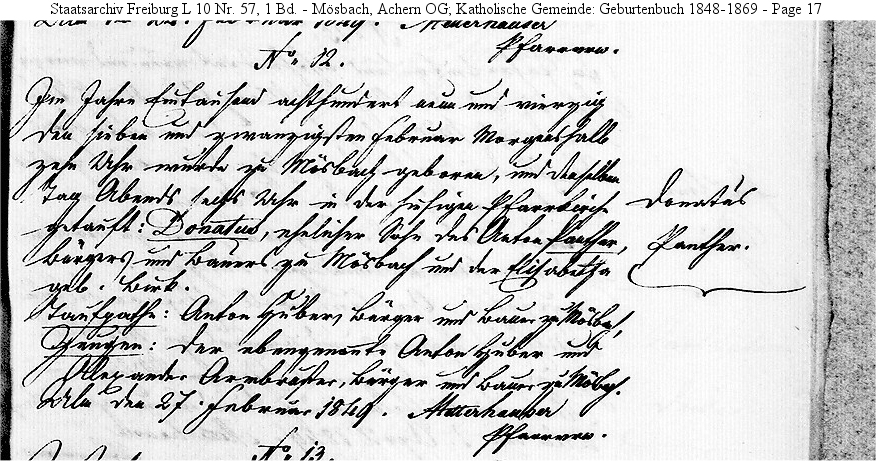 Staatsarchiv Freiburg L 10 Nr. 57, 1 Bd. - Mösbach, Achern OG; Katholische Gemeinde: Geburtenbuch 1848-1869 - Page 17
1849.
Pfarrverw.
No. 12.
Im Jahre Eintausend achthundert neun und vierzig
den sieben und zwanzigsten Februar Morgens halb
zehn Uhr wurde zu Mösbach geboren, und denselben
Tag Abends sechs Uhr in der hiesigen Pfarrkirche
getauft: Donatus, ehelicher Sohn des Anton Panther,
Bürgers und Bauers zu Mösbach und der Elisabetha
geb. Birk.
Donatus
Panther.
Taufpathe: Anton Huber, Bürger und Bauer zu Mösbach,
Zeugen: der ebengenannte Anton Huber und
Alexander Armbruster, Bürger und Bauer zu Mösbach.
Ulm den 27. Februar 1849.
Pfarrverw.
No. 13.